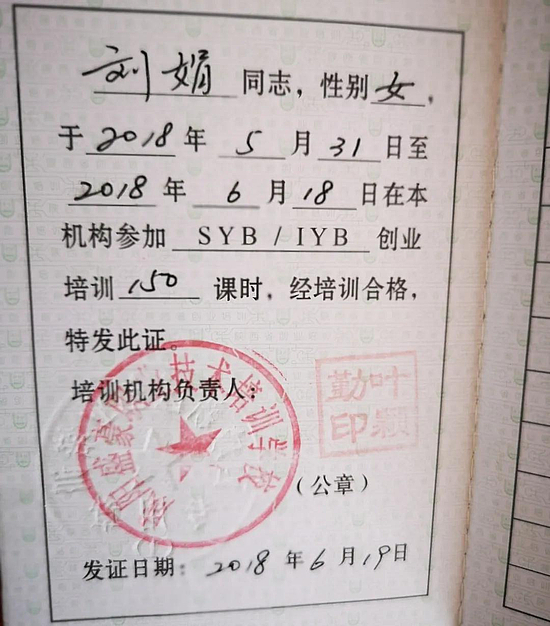 刘娟 同志，性别女，
于2018年 5 月31日至
2018年 6 月18日在本
机构参加 SYB / IYB 创业
培训150 课时，经培训合格，
特发此证。
培训机构负责人：
技术培训学校
勤叶
印颖
（公章）
发证日期：2018年6月19日